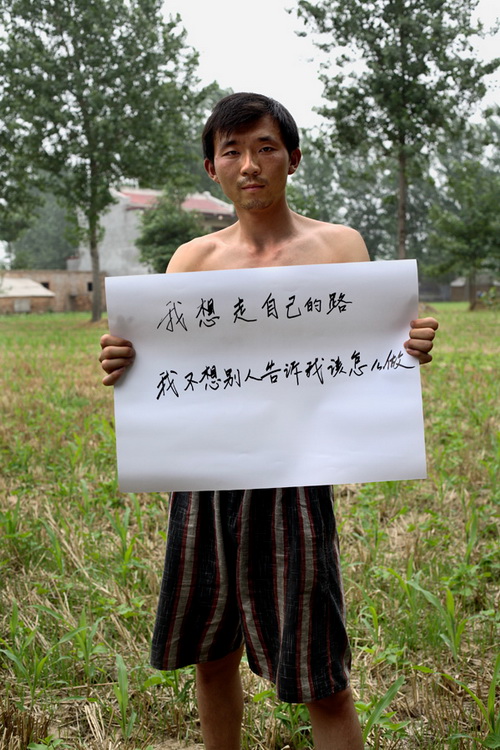 我想走自己的路
我不想别人告诉我该怎么做